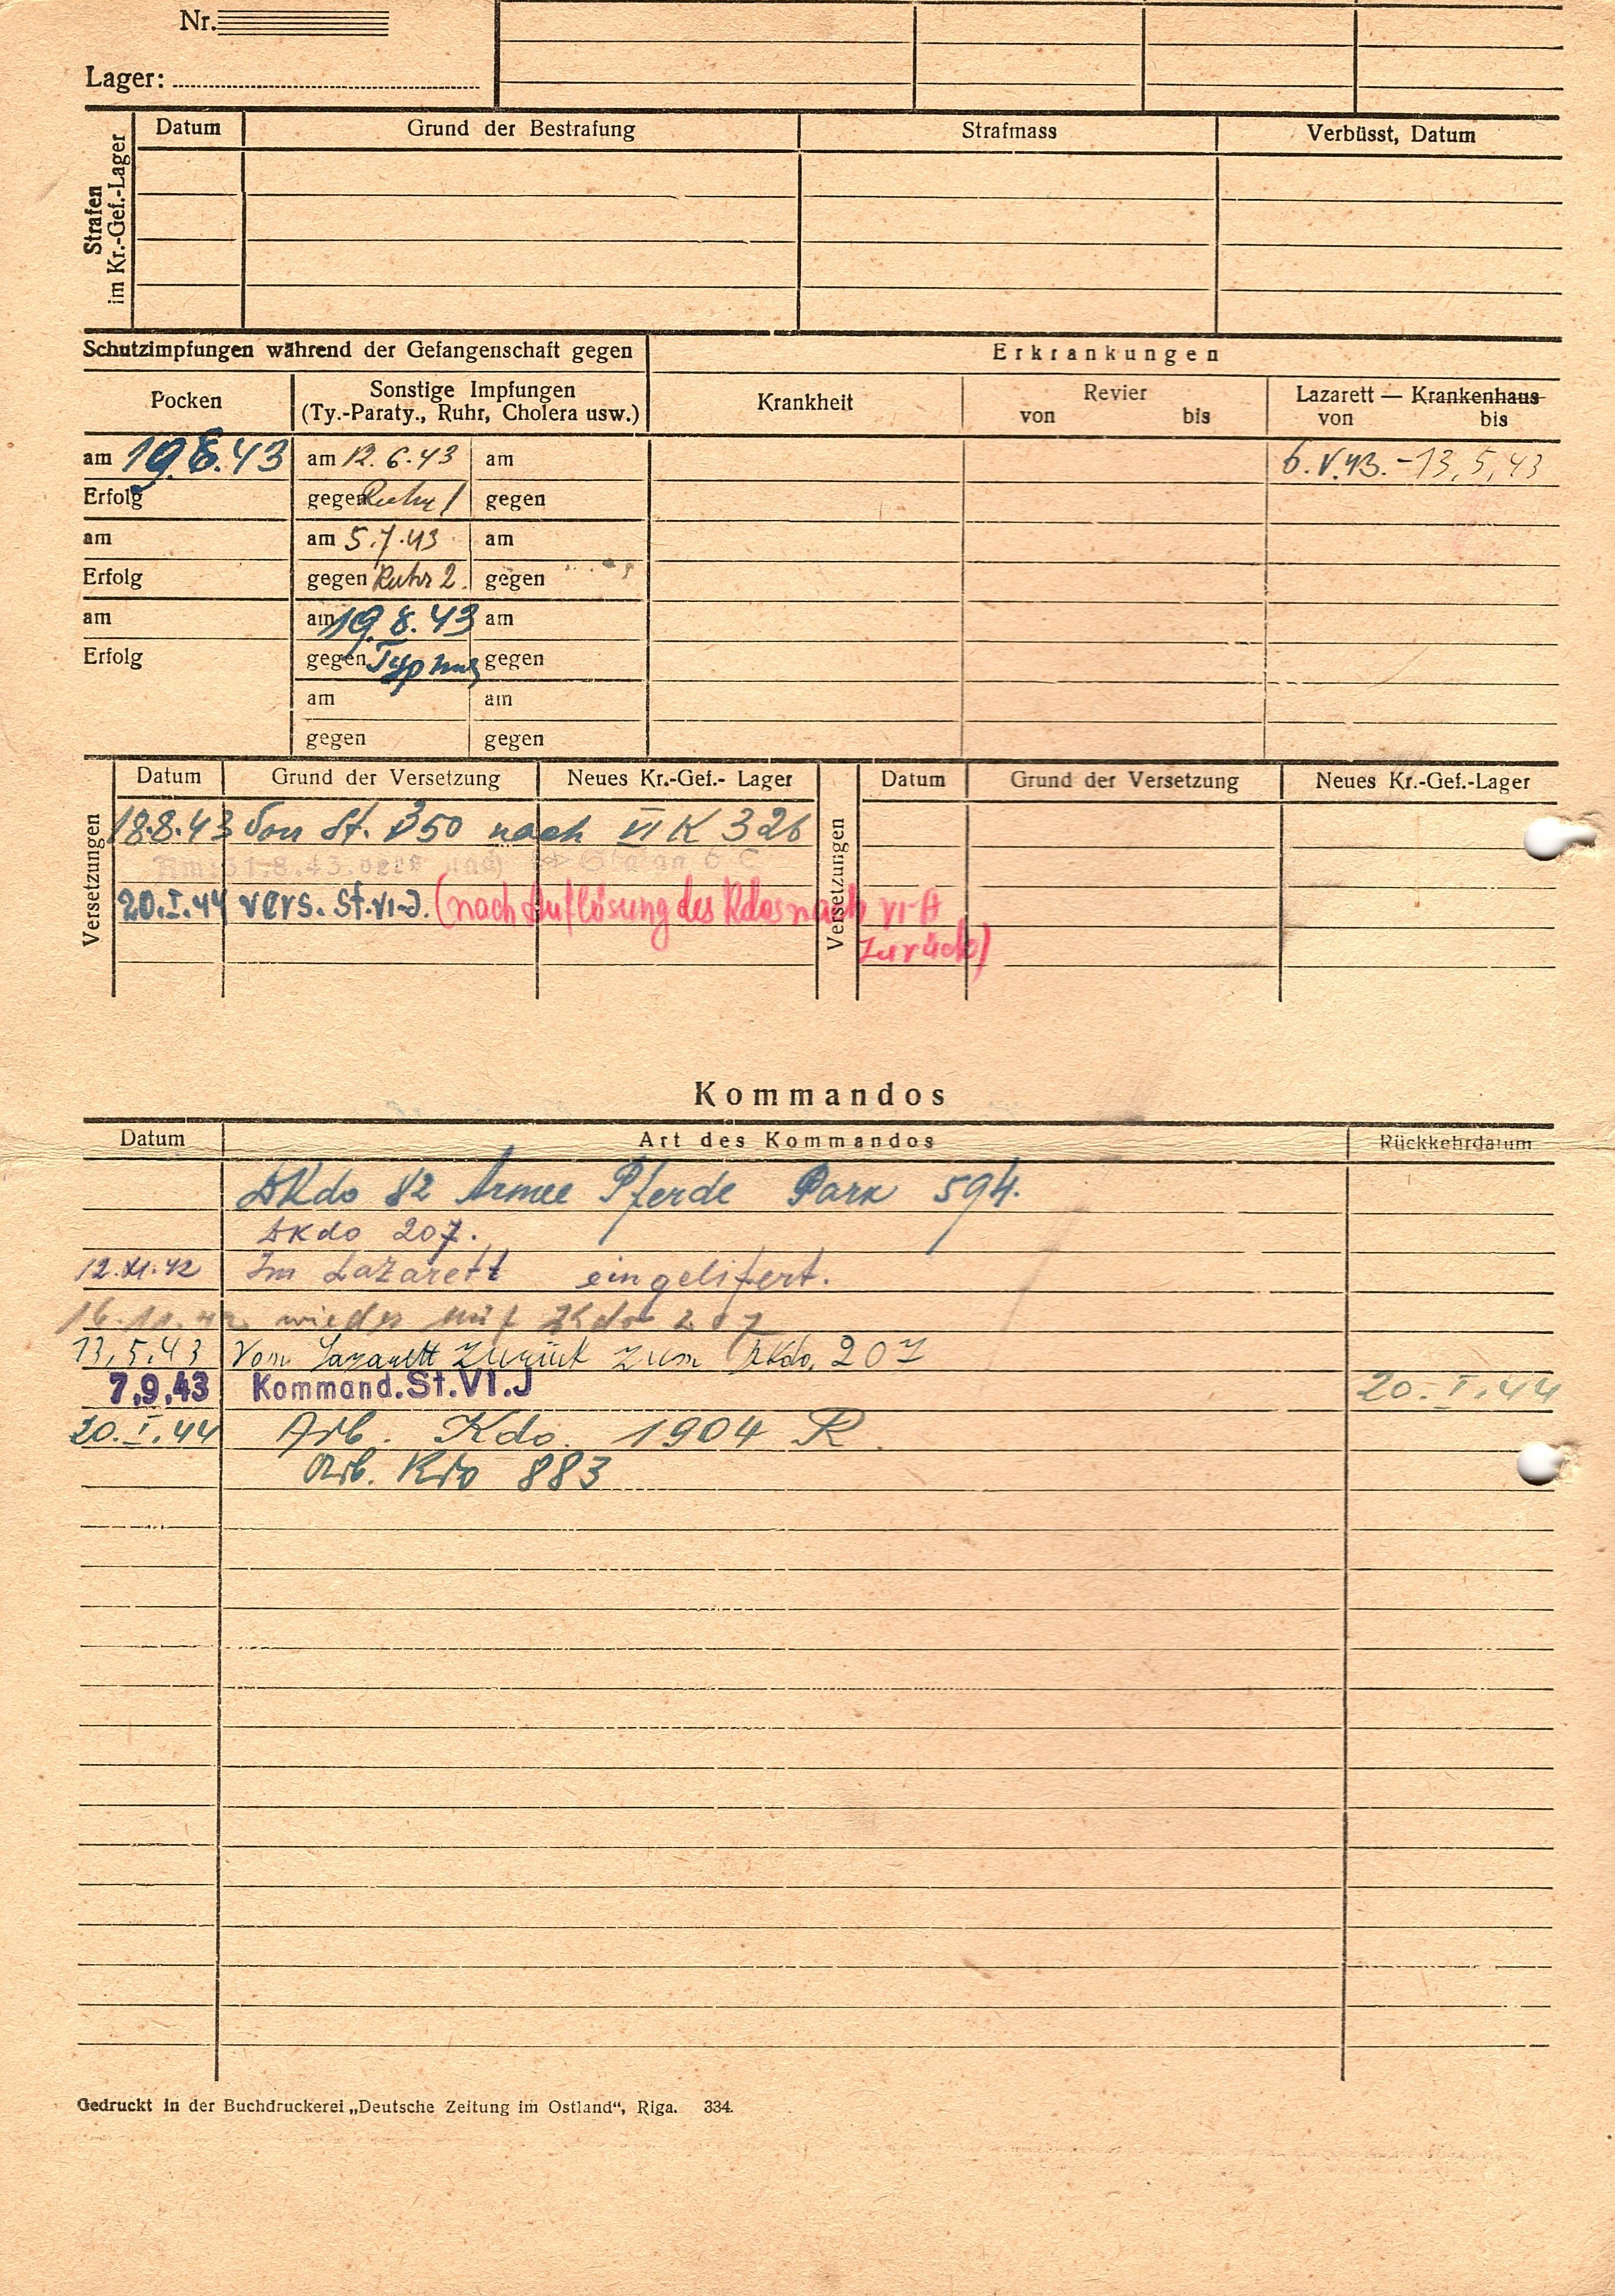 Nr.
Lager:
Strafen im Kr.-Gef.-Lager
Datum Grund der Bestrafung Strafmass Verbüsst, Datum
Schutzimpfungen während der Gefangenschaft gegen Erkrankungen
Pocken Sonstige Impfungen (Ty.-Paraty., Ruhr, Cholera usw.) Krankheit Revier von bis Lazarett — Krankenhaus von bis
am 19.8.43 am 12.6.43 am 6.V.43. - 13,5,43
Erfolg gegen Ruhr 1 gegen
am am 5.7.43 am
Erfolg gegen Ruhr 2. gegen
am am 19.8.43 am
Erfolg gegen Typhus gegen
am am
gegen gegen
Versetzungen Datum Grund der Versetzung Neues Kr.-Gef.- Lager Versetzungen Datum Grund der Versetzung Neues Kr.-Gef.-Lager
18.8.43 Von St. 350 nach VI K 326
31.8.43
20.I.44 vers. St.VI-J. (nach Auflösung des Kdos nach VI-A
zurück)
Kommandos
Datum Art des Kommandos Rückkehrdatum
AKdo 82 Armee Pferde Park 594.
AKdo 207.
12.XI.42 Im Lazarett eingelifert.
16.11.42 wieder auf AKdo 207
13,5,43 Vom Lazarett zurück zum Akdo. 207
7.9.43 Kommand.St.VI.J 20.I.44
20.I.44 Arb. Kdo. 1904 R.
Arb. Kdo 883
Gedruckt in der Buchdruckerei „Deutsche Zeitung im Ostland“, Riga. 334.